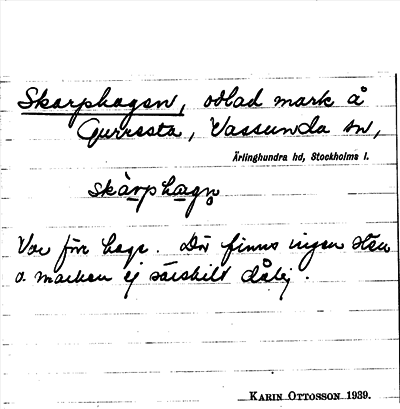 Skarphagen, odlad mark å
Gurresta, Vassunda sn,
Ärlinghundra hd, Stockholms l.
skàrphagn̥
Var förr hage. Där finns ingen sten
o. marken ej särskilt dålig.
KARIN OTTOSSON 1939.